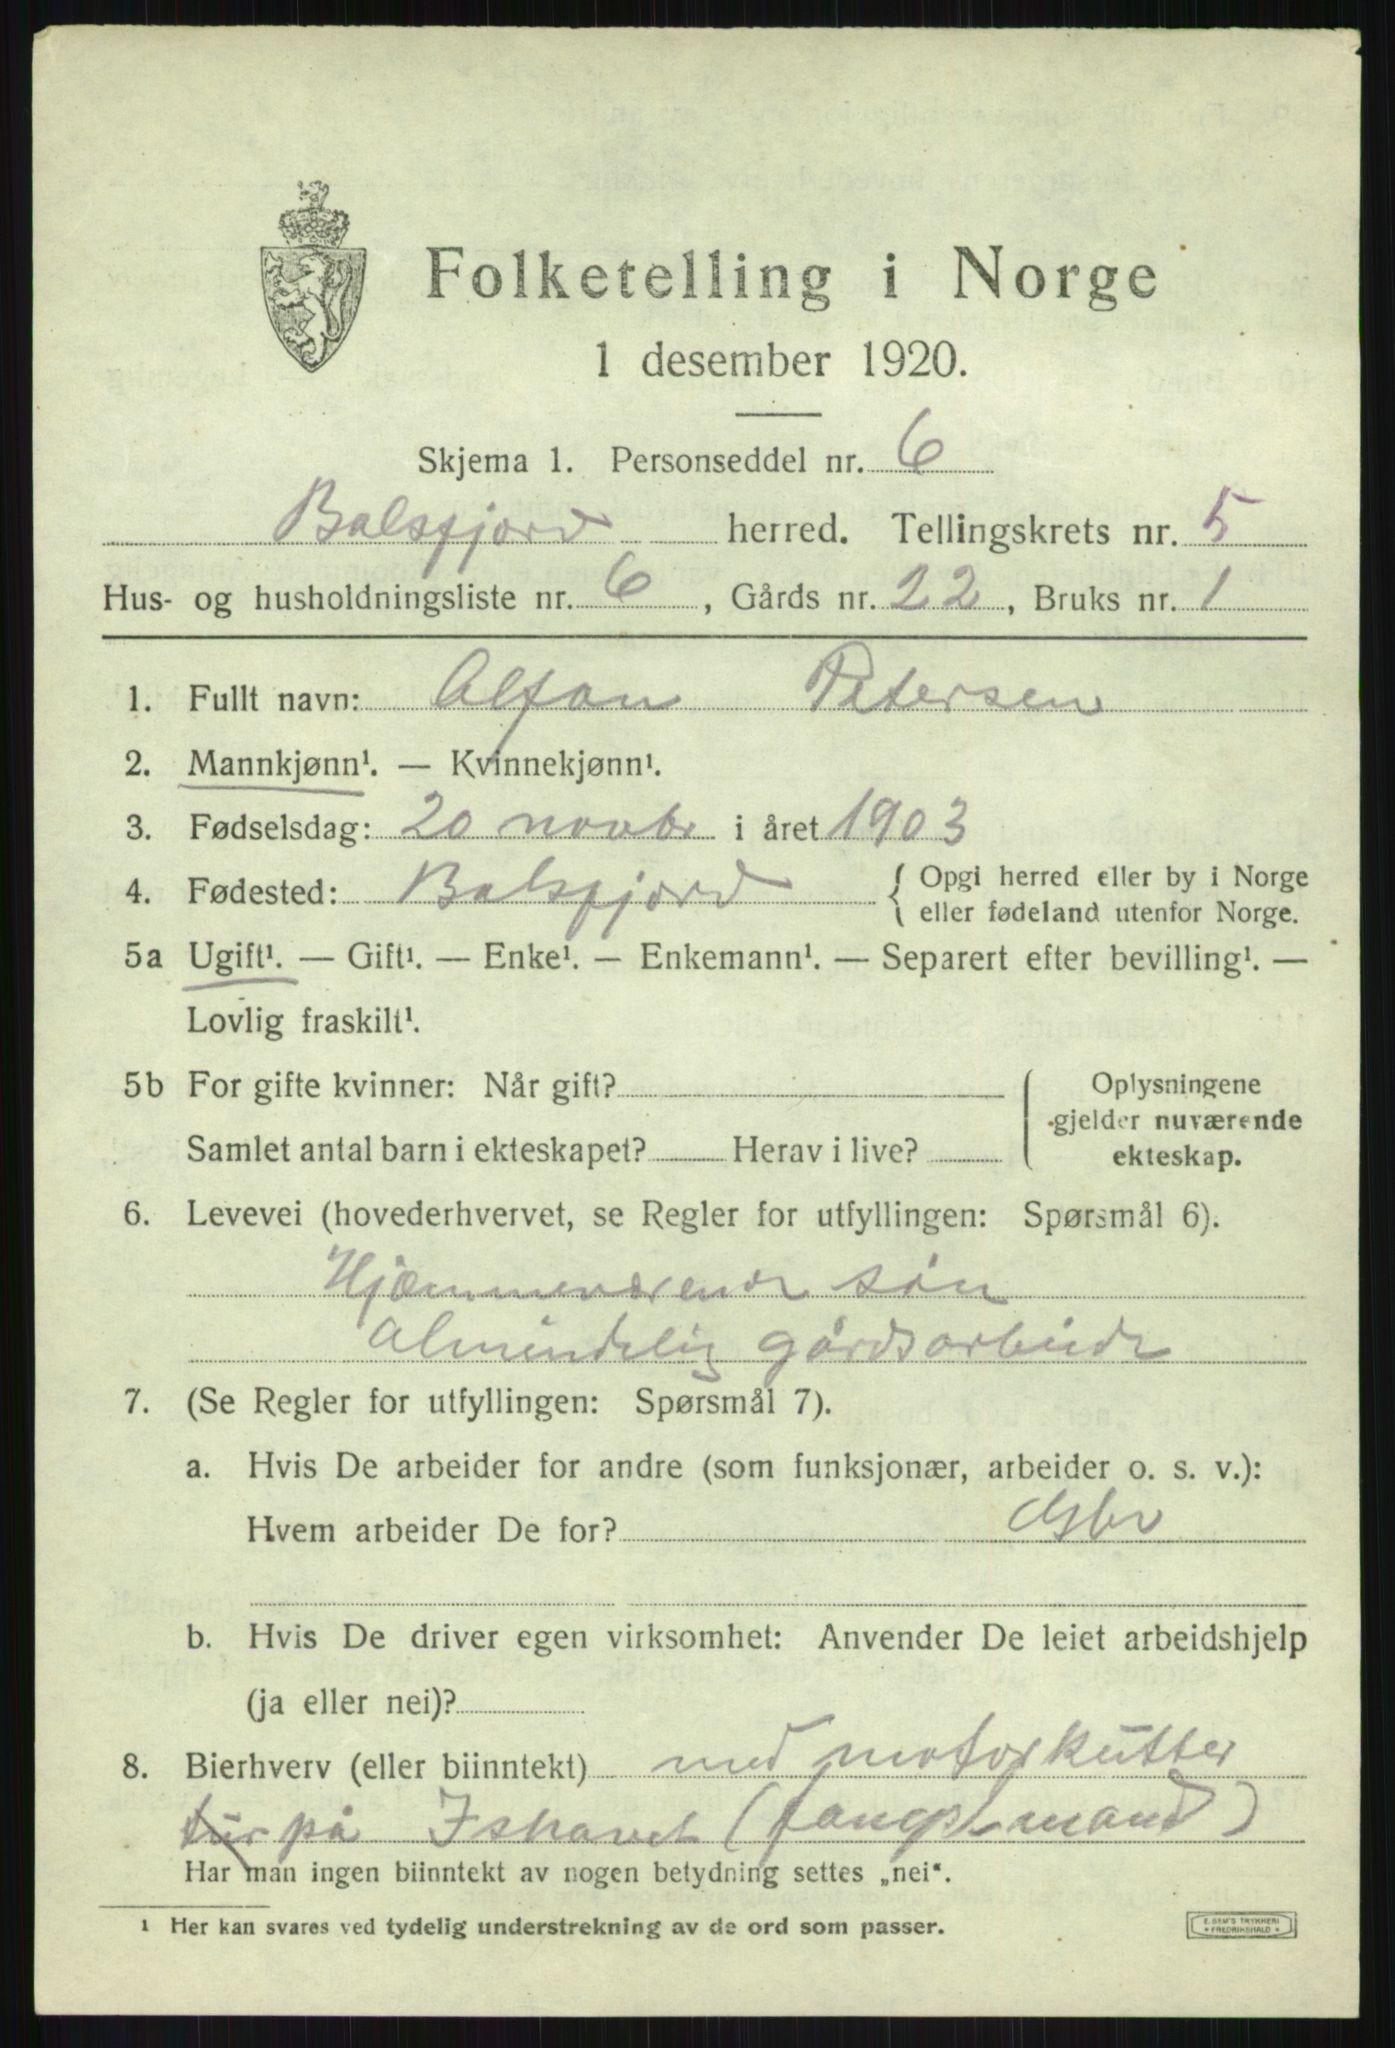 Folketelling i Norge
1 desember 1920.
Skjema 1. Personseddel nr. 6
Balsfjord herred. Tellingskrets nr. 5
Hus- og husholdningsliste nr. 6, Gårds nr. 22, Bruks nr. 1
1. Fullt navn: Alfon Petersen
2. Mannkjønn¹. — Kvinnekjønn¹.
3. Fødselsdag: 20 novbr i året 1903
4. Fødested: Balsfjord { Opgi herred eller by i Norge
eller fødeland utenfor Norge.
5a Ugift¹. — Gift¹. — Enke¹. — Enkemann¹. — Separert efter bevilling¹. —
Lovlig fraskilt¹.
5b For gifte kvinner: Når gift?
Samlet antal barn i ekteskapet? Herav i live?
Oplysningene
gjelder nuværende
ekteskap.
6. Levevei (hovederhvervet, se Regler for utfyllingen: Spørsmål 6).
Hjæmmeværende søn
almindelig gårdsarbeide
7. (Se Regler for utfyllingen: Spørsmål 7).
a. Hvis De arbeider for andre (som funksjonær, arbeider o. s. v.):
Hvem arbeider De for? Gbr
b. Hvis De driver egen virksomhet: Anvender De leiet arbeidshjelp
(ja eller nei)?
8. Bierhverv (eller biinntekt) med motorkutter
tur på Ishavet (fangstmand)
Har man ingen biinntekt av nogen betydning settes „nei“.
¹ Her kan svares ved tydelig understrekning av de ord som passer.
E. SEM'S TRYKKERI
FREDRIKSHALD